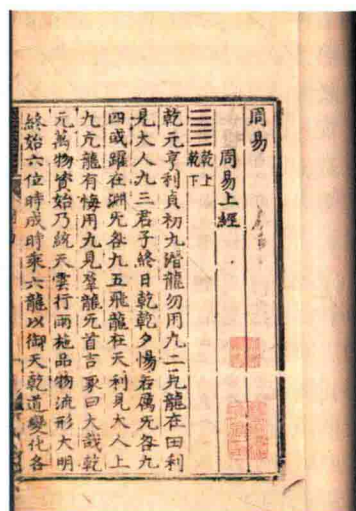 周易
周易上經
乾上
乾下
乾元亨利貞初九潛龍勿用九二見龍在田利
見大人九三君子終日乾乾夕惕若厲无咎九
四或躍在淵无咎九五飛龍在天利見大人上
九亢龍有悔用九見羣龍无首吉彖曰大哉乾
元萬物資始乃統天雲行雨施品物流形大明
終始六位時成時乘六龍以御天乾道變化各